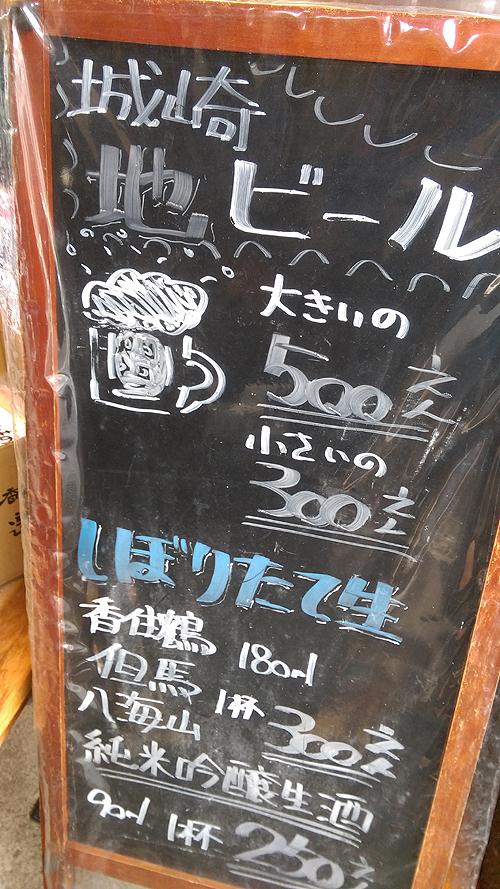 城崎
地ビール
大きいの
500え
小さいの
300え
しぼりたて生
香住鶴 180ml
但馬
八海山 1杯 300え
純米吟醸生酒
90ml 1杯 250え